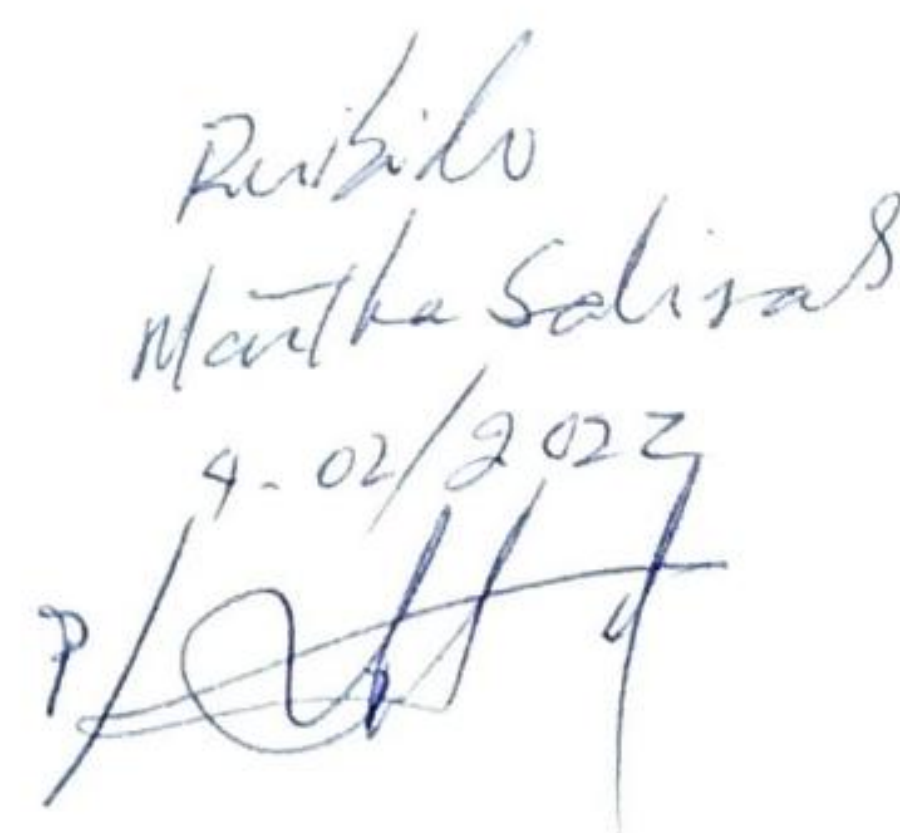 Recibido
Martha Salinas
4-02/2022
P/